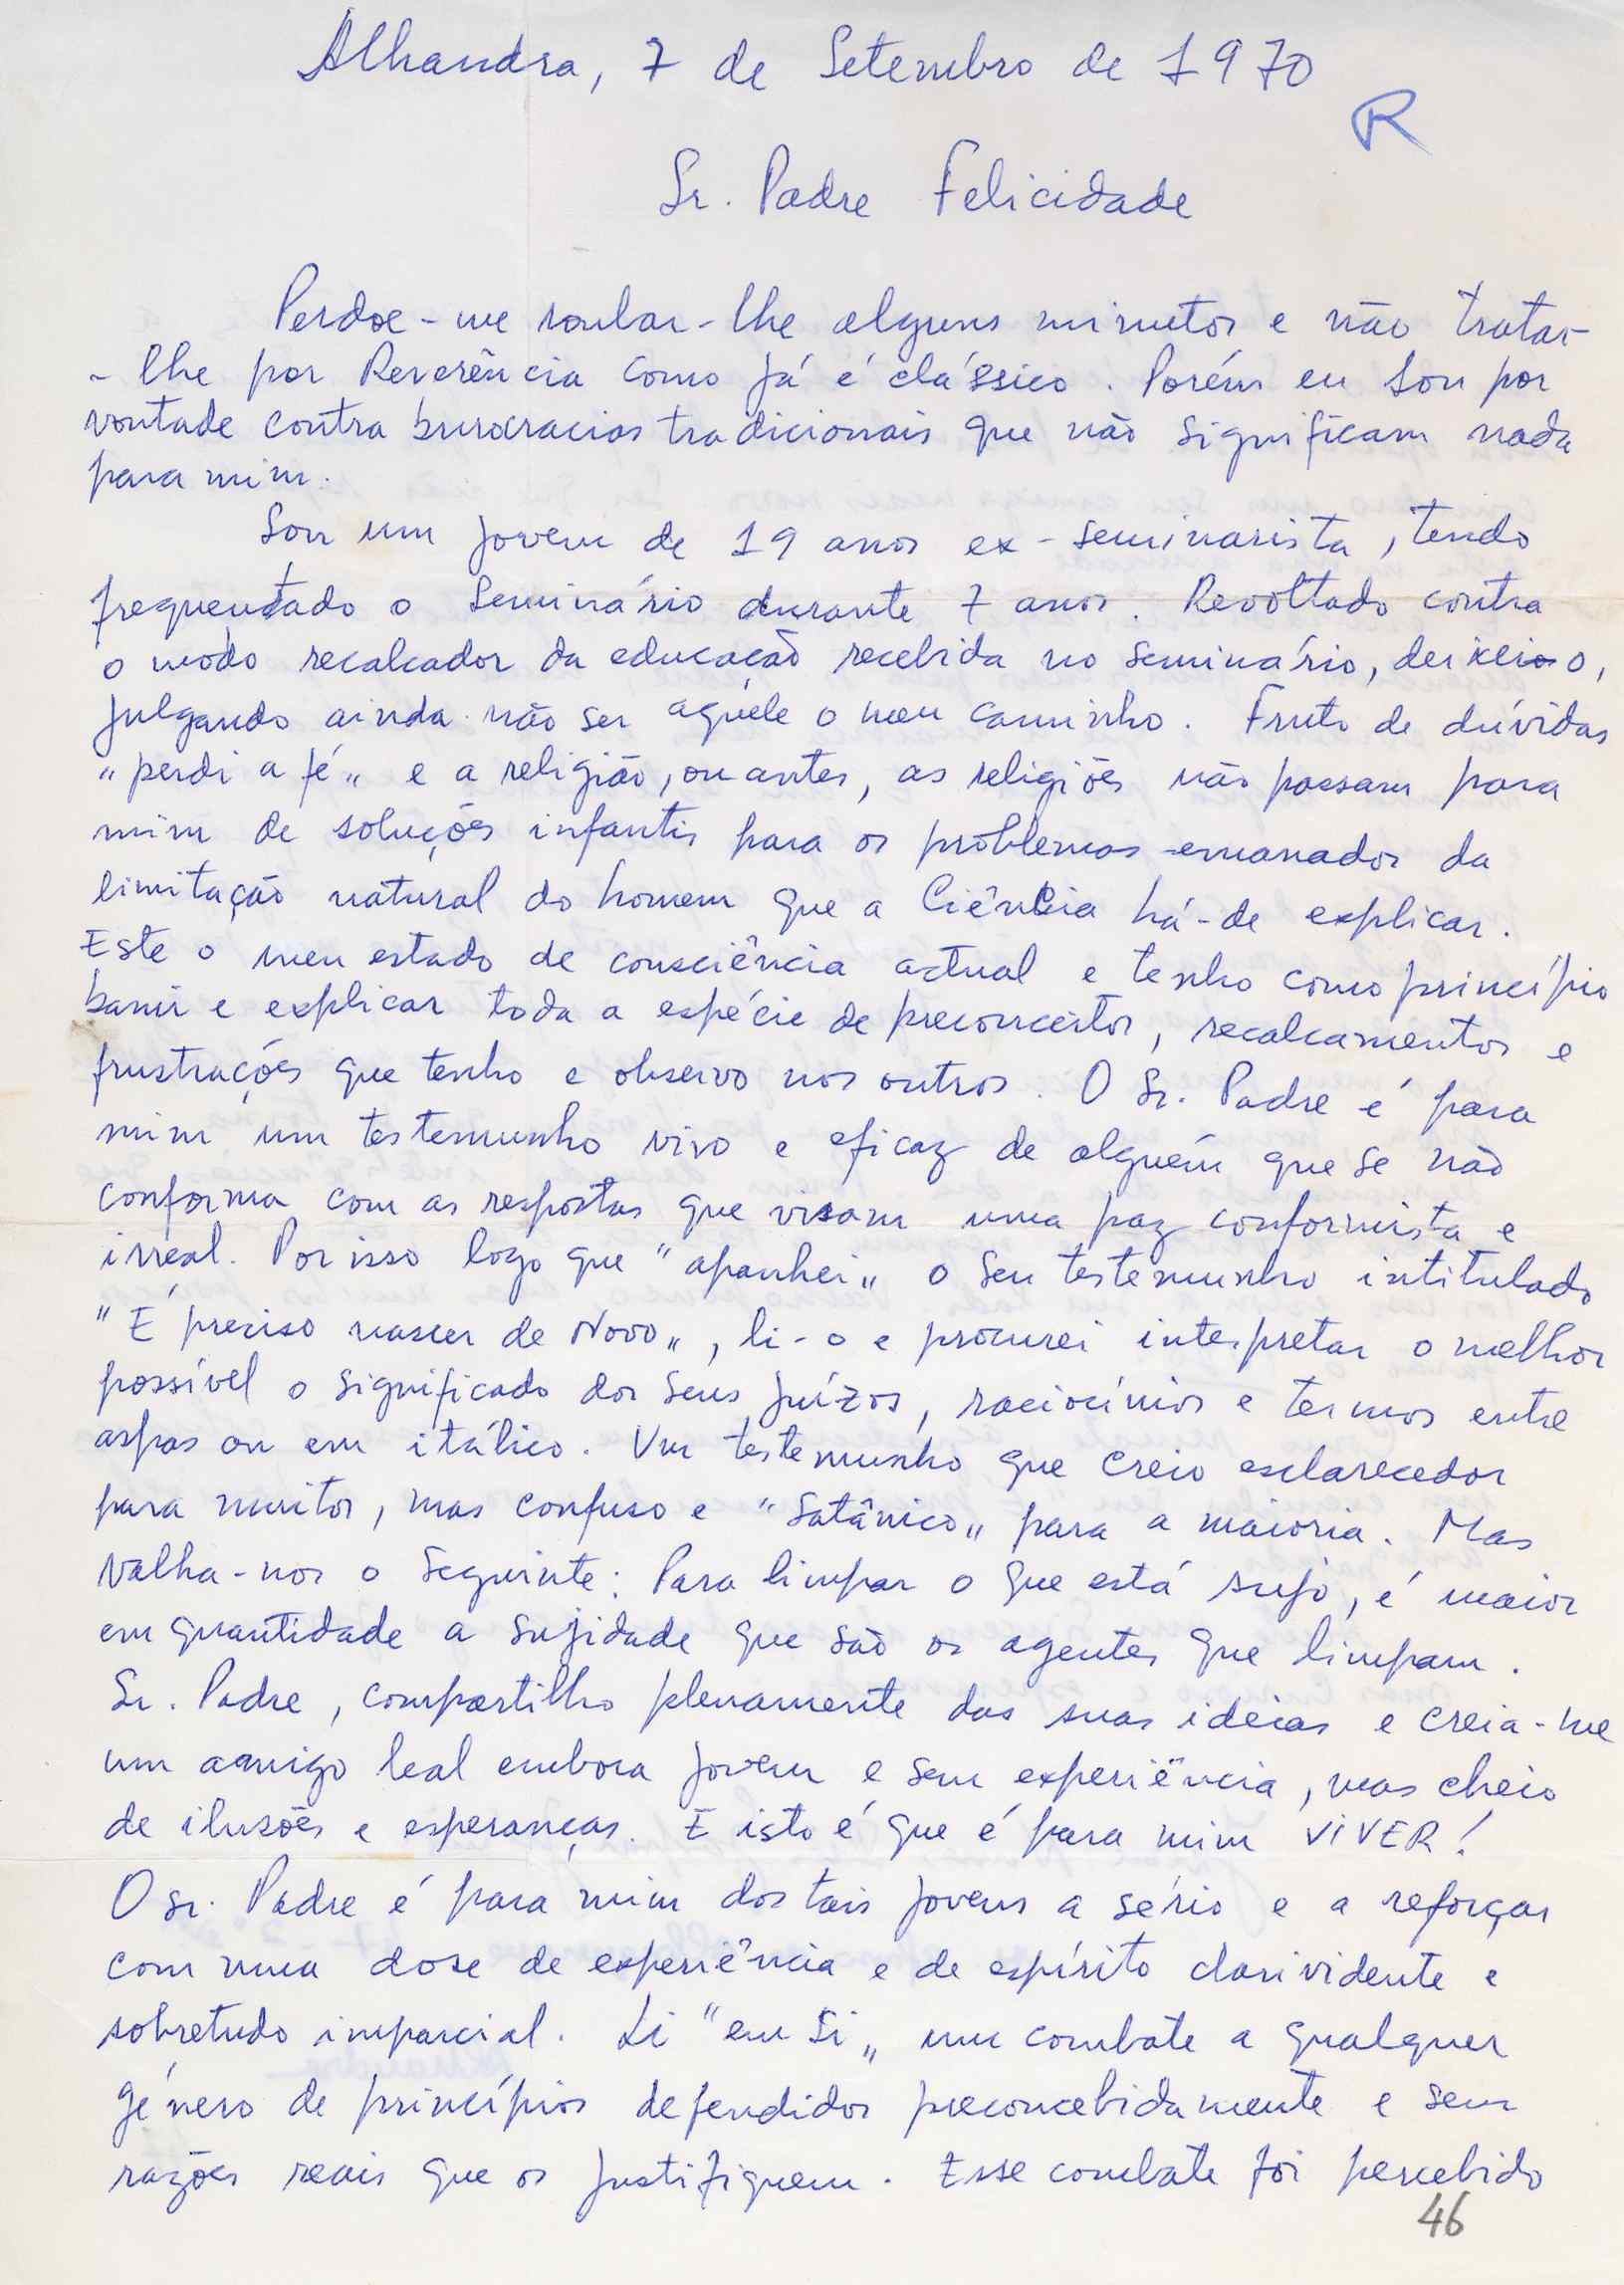 Alhandra, 7 de Setembro de 1970
R
Sr. Padre Felicidade
Perdoe-me roubar-lhe alguns minutos e não tratar-
-lhe por Reverência como já é clássico. Porém eu sou por
vontade contra burocracias tradicionais que não significam nada
para mim.
Sou um jovem de 19 anos ex-seminarista, tendo
frequentado o Seminário durante 7 anos. Revoltado contra
o modo recalcador da educação recebida no seminário, deixei o,
julgando ainda não ser aquele o meu caminho. Fruto de dúvidas
"perdi a fé" e a religião, ou antes, as religiões não passam para
mim de soluções infantis para os problemas emanados da
limitação natural do homem que a Ciência há-de explicar.
Este o meu estado de consciência actual e tenho como princípio
banir e explicar toda a espécie de preconceitos, recalcamentos e
frustrações que tenho e observo nos outros. O Sr. Padre é para
mim um testemunho vivo e eficaz de alguém que se não
conforma com as respostas que visam uma paz conformista e
irreal. Por isso logo que "apanhei" o seu testemunho intitulado
"É preciso nascer de Novo", li-o e procurei interpretar o melhor
possível o significado dos seus juízos, raciocínios e termos entre
aspas ou em itálico. Um testemunho que creio esclarecedor
para muitos, mas confuso e "Satânico" para a maioria. Mas
valha-nos o seguinte: Para limpar o que está sujo, é maior
em quantidade a sujidade que são os agentes que limpam.
Sr. Padre, compartilho plenamente das suas ideias e creia-me
um amigo leal embora jovem e sem experiência, mas cheio
de ilusões e esperanças. E isto é que é para mim VIVER!
O Sr. Padre é para mim dos tais jovens a sério e a reforçar
com uma dose de experiência e de espírito clarividente e
sobretudo imparcial. Li "em Si" um combate a qualquer
género de princípios defendidos preconcebidamente e sem
razões reais que os justifiquem. Esse combate foi percebido
46